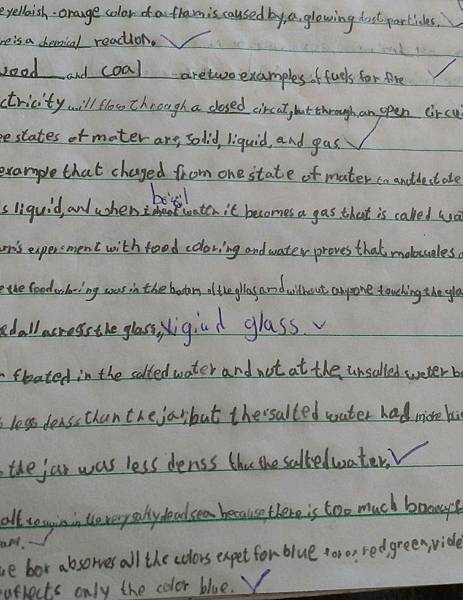 eyellaish-orange color of a flam is caused by, a, glowing dost particles.
re is a chemical reaction.
wood and coal are two examples of fuels for fire
ctricity will flow through a closed circat, but through an open circui
ee states of mater are, solid, liquid, and gas
example that changed from one state of mater to anothe state
s liquid, and when boiil water it becomes a gas that is called wat
m's experement with food coloring and water proves that
e the food coloring was in the bottom of the glass and without anyone touching the gla
d all across the glass, vigiud glass.
n floated in the salted water and not at the unsalted water b
s less denss than the jar, but the salted water had more
the jar was less denss tha the salted water,
alt in the very salty dead sea because, there is too much
ue box absorves all the colors expet for blue red, green, viole
reflects only the color blue.